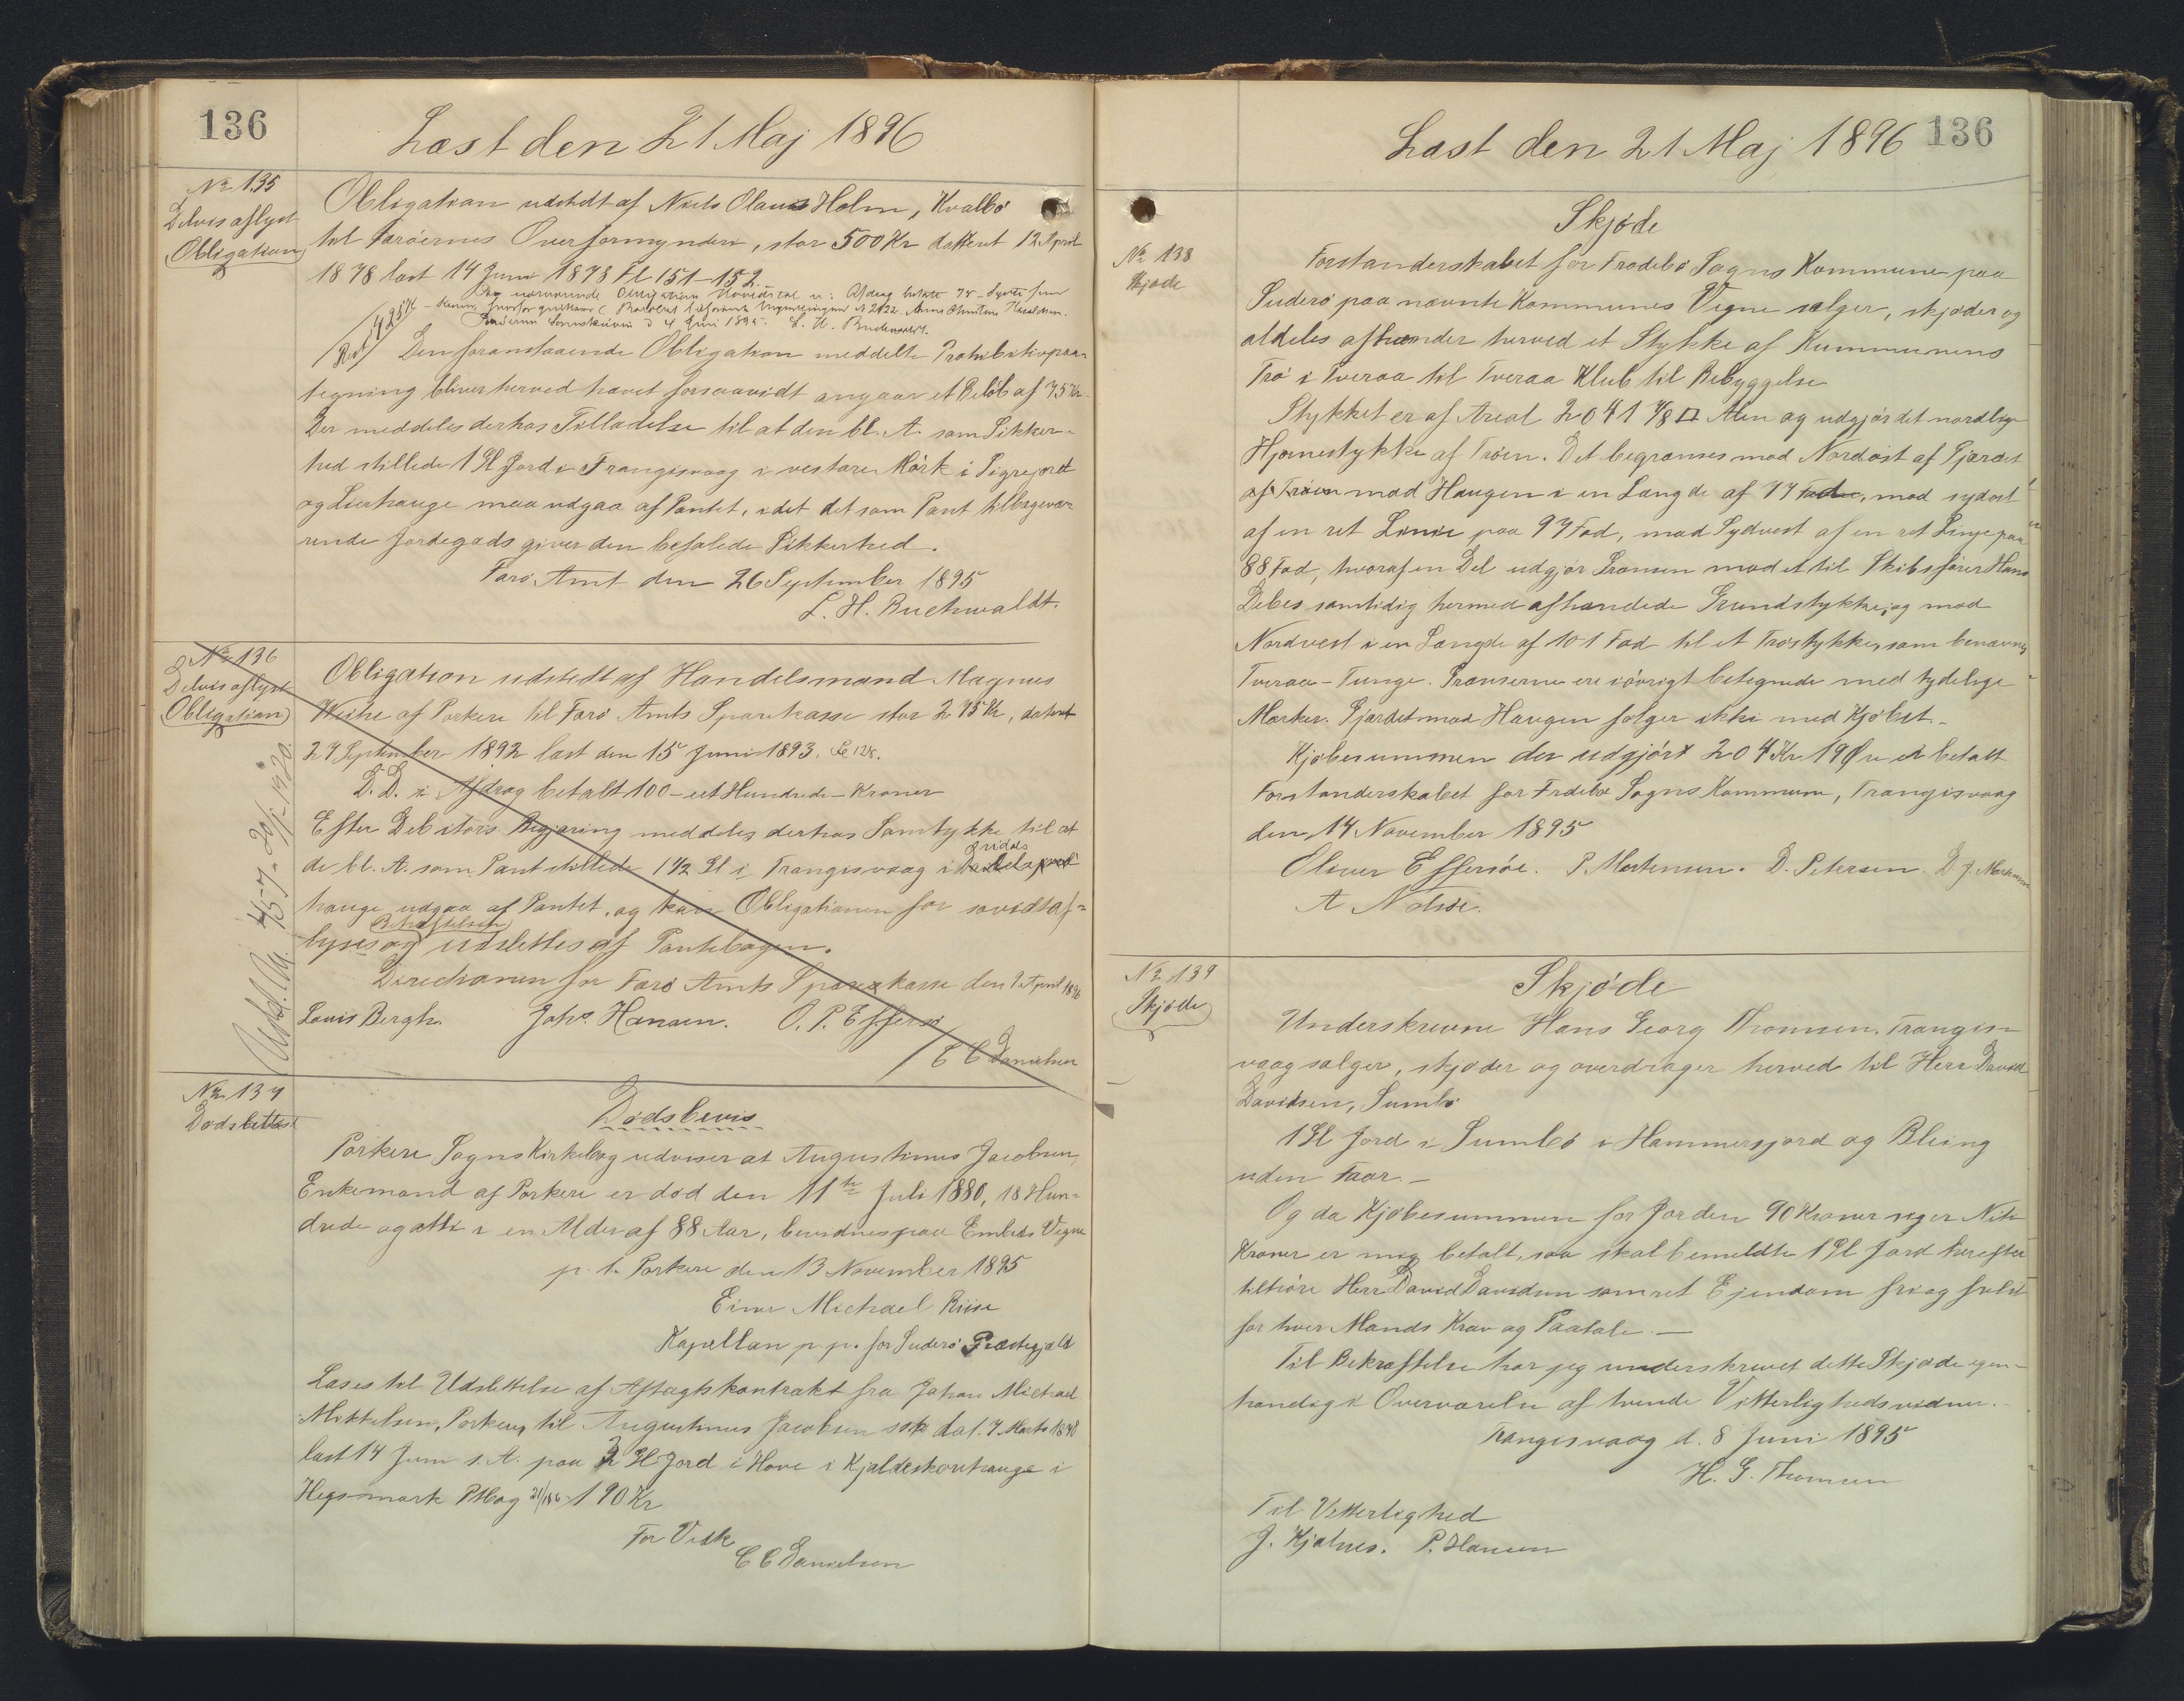 136
Læst den 21 Maj 1896
No 135
Delvis aflyst
Obligation
Obligation udstedt af Niels Olaus Holm, Kvalbø
til Færøernes Overformynderi, stor 500 Kr dateret 12 April
1878 læst 14 Juni 1878 Fl 151-152.
L. H. Buchwaldt.
Den foranstaaende Obligation meddelte Prohibitivpaa-
tegning bliver herved hævet forsaavidt angaar et Beløb af 75 Kr.
Der meddeles derhos Tilladelse til at den bl. A. som Sikker-
hed stillede 1 Gl Jord i Trangisvaag i vestare Mørk i
og Lierhauge maa udgaa af Pantet, idet det som Pant tilbageværende
rende Jordegods giver den befalede Sikkerhed.
Færø Amt den 26 September 1895
L. H. Buchwaldt.
No 136
Delvis aflyst
Obligation
Obligation udstedt af Handelsmand Magnus
Weihe af Porkere til Færø Amts Sparekasse stor 275 Kr, dateret
27 September 1892 læst den 15 Juni 1893.
D. D. i Afdrag betalt 100 - eet Hundrede - Kroner
Efter Debitors Begjæring meddeles derhos Samtykke til at
de bl. A. som Pant stillede 1 1/2 Gl i Trangisvaag i
hauge udgaa af Pantet, og kan Obligationen for saavidt af-
lyses og udslettes af Pantebogen.
Directionen for Færø Amts Sparekasse den April 1896
Louis Bergh. Johs. Hansen. O. P. Effersø
/ C C Danielsen
No 137
Dødsattest
Dødsbevis
Porkere Sogns Kirkebog udviser at Augustinus Jacobsen,
Enkemand af Porkere er død den 11te Juli 1880, 18 Hun-
drede og atti i en Alder af 88 Aar, bevidnes paa Embeds Vegne
p. t. Porkere den 13 November 1895
Einer Michael Riise
Kapellan p. p. for Suderø Præstegjæld
Læses til Udslettelse af Aftægtskontrakt fra Johan Michael
Mikkelsen, Porkere, til Augustinus Jacobsen dat. 7 Marts 1878
læst 14 Juni s. A. paa 2 Gl Jord i Hove i Kjældeskorihauge i
Hegsmark 190 Kr
For Vidk
C C Danielsen
136
Læst den 21 Maj 1896
No 138
Skjøde
Skjøde
Forstanderskabet for Frodebø Sogns Kommune paa
Suderø paa nævnte Kommunes Vegne sælger, skjøder og
aldeles afhænder herved et Stykke af Kummunens
Trø i Tveraa til Tveraa Klub til Bebyggelse
Stykket er af Areal 2041 7/8 □ Alen og udgjør det nordlige
Hjørnestykke af Trøen. Det begrænses mod Nordøst af Gjærdet
af Trøen mod Haugen i en Længde af 77 Fod, mod sydøst
af en ret Linie paa 97 Fod, mod Sydvest af en ret Linje paa
88 Fod, hvoraf en Del udgjør Grænsen mod et til Skibsfører Hans
Debes samtidig hermed afhændede Grundstykke; og mod
Nordvest i en Længde af 101 Fod til et Trøstykke, som benævnes
Tveraa-Tunge. Grænserne ere iøvrigt betegnede med tydelige
Mærker. Gjærdet mod Haugen følger ikke med Kjøbet.
Kjøbesummen der udgjør 204 Kr 19 Øre er betalt
Forstanderskabet for Frdebø Sogns Kommune, Trangisvaag
den 14 November 1895
Oliver Effersøe. P Mortensen. D. Petersen. D J. Mortensen
A Nolsøe.
No 139
Skjøde
Skjøde
Underskrevne Hans Georg Thomsen, Trangis-
vaag sælger, skjøder og overdrager herved til Herr David
Davidsen, Sumbø
1 Gl Jord i Sumbø i Hammersjord og Bleing
uden Faar. -
Og da Kjøbesummen for Jorden 90 Kroner siger Niti
Kroner er mig betalt, saa skal bemeldte 1 Gl Jord herefter
tilhøre Herr David Davidsen som ret Ejendom fri og frelst
for hver Mands Krav og Paatale. -
Til Bekræftelse har jeg underskrevet dette Skjøde egen-
hændig i Overværelse af tvende Vitterlighedsvidner.
Trangisvaag d. 8 Juni 1895
H. G. Thomsen
Til Vitterlighed
J. Kjølnes. P. Hansen